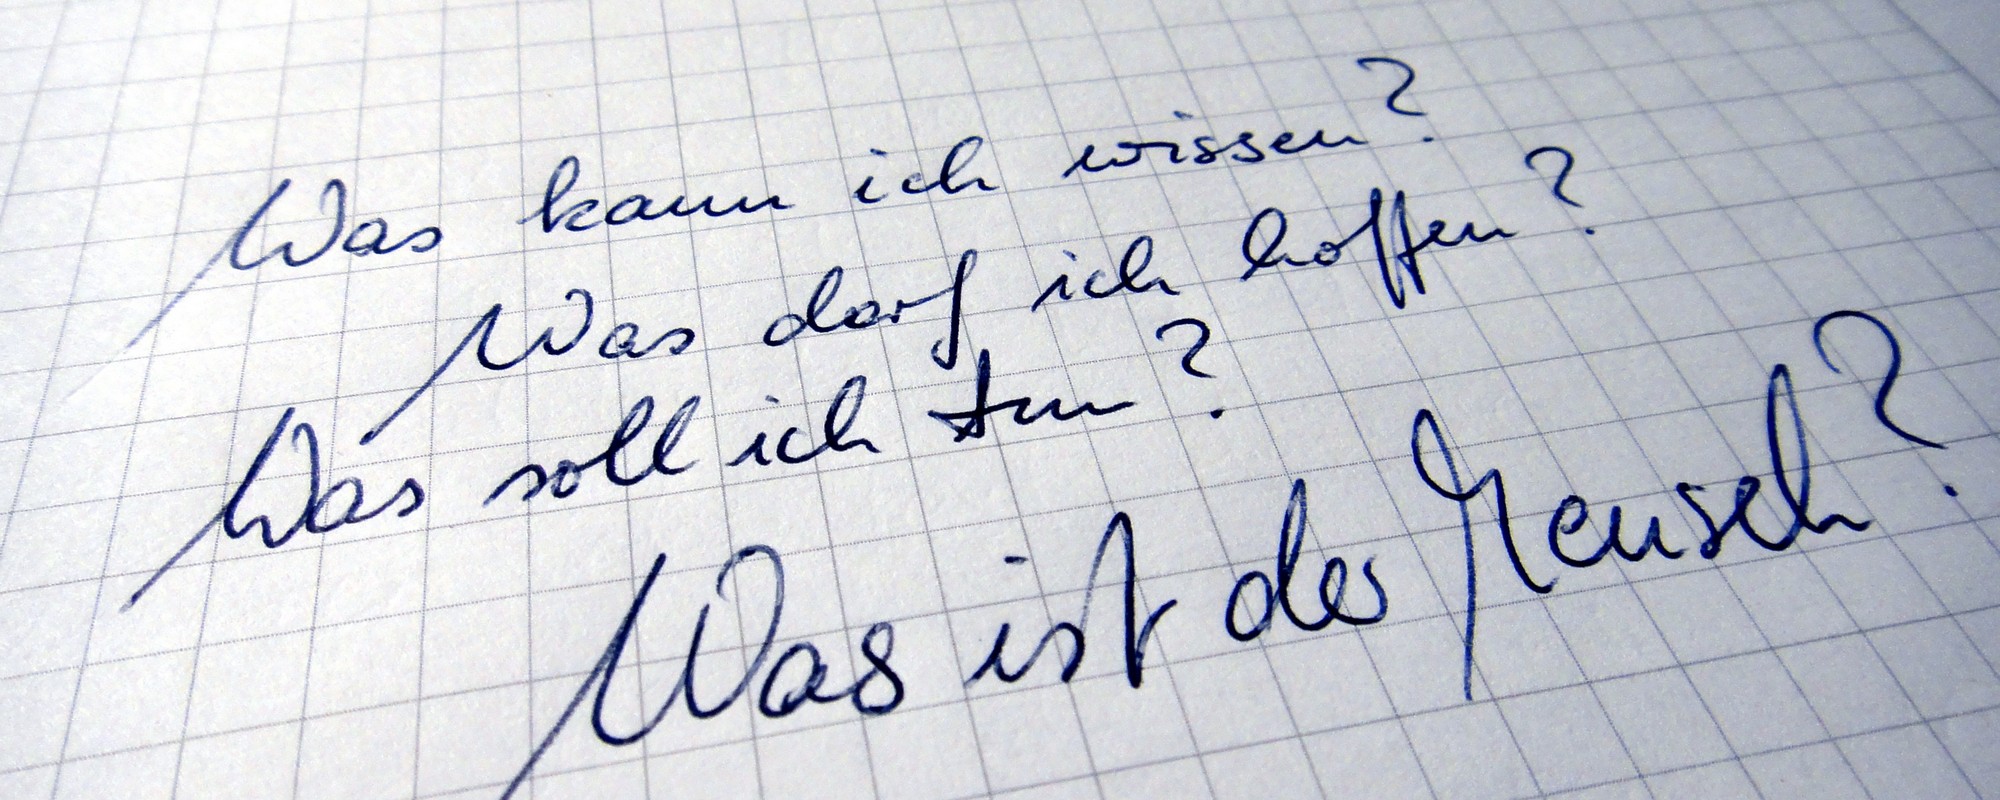 Was kann ich wissen?
Was darf ich hoffen?
Was soll ich tun?
Was ist der Mensch?